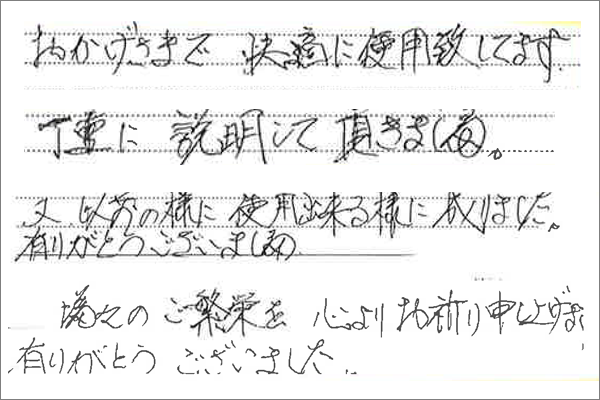 おかげさまで 快適に使用致してます。
丁重に 説明して 頂きました。
又 以前の様に 使用出来る様に 成りました。
有りがとうございました
益々の ご繁栄を 心より お祈り申し上げま
有りがとう ございました。